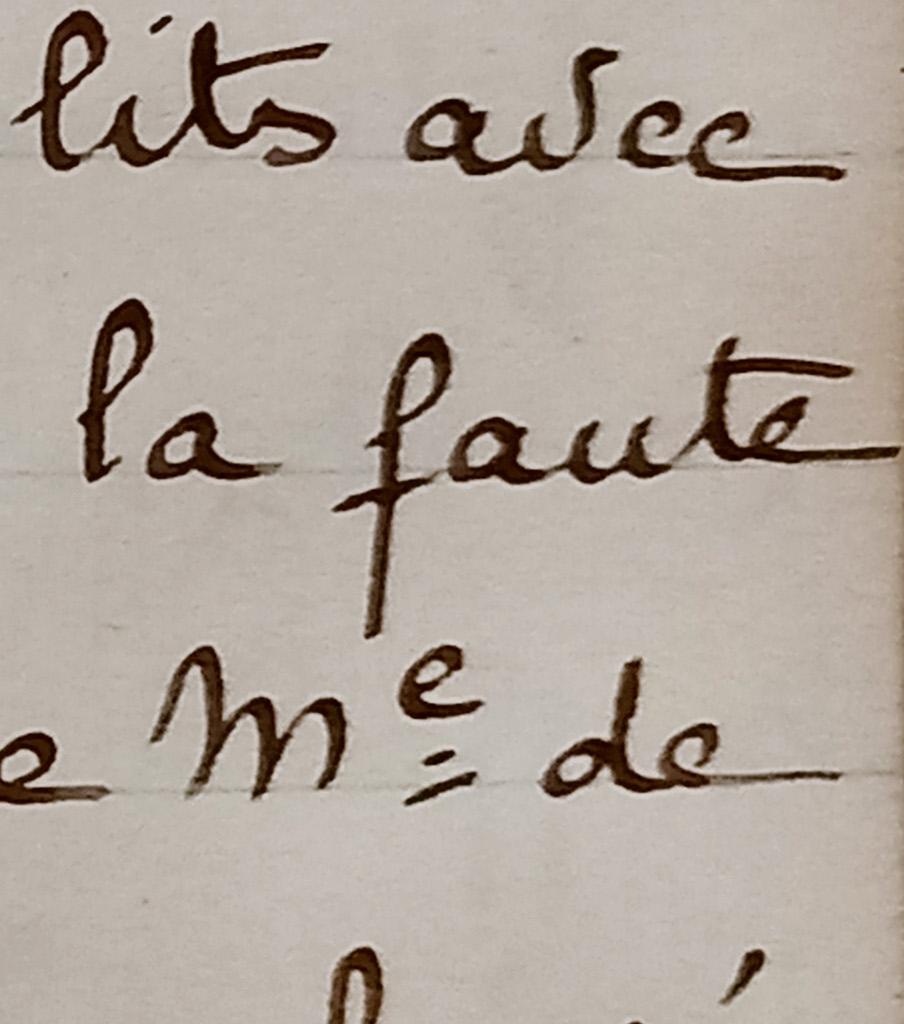 lits avec
la faute
Me de